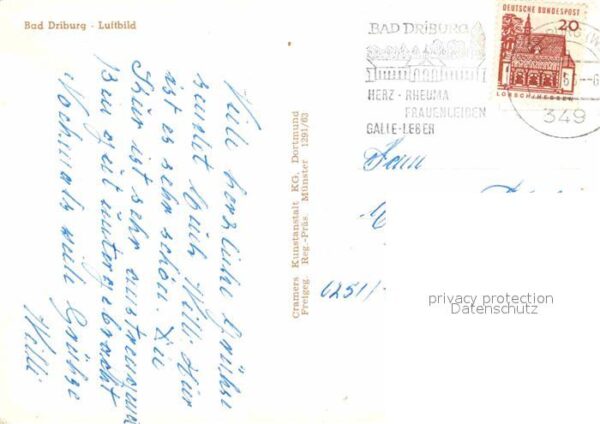 Bad Driburg - Luftbild
Viele herzliche Grüße
sendet Euch Willi. Hier
ist es sehr schön. Die
Kur ist sehr anstrengend
Bin gut untergebracht
Nochmals viele Grüße
Willi
Cramers Kunstanstalt KG, Dortmund
Freigeg. Reg.-Präs. Münster 1291/63
BAD DRIBURG
HERZ - RHEUMA
FRAUENLEIDEN
GALLE-LEBER
DEUTSCHE BUNDESPOST
20
LORSCH/HESSEN
349
Fam
6251/
privacy protection
Datenschutz